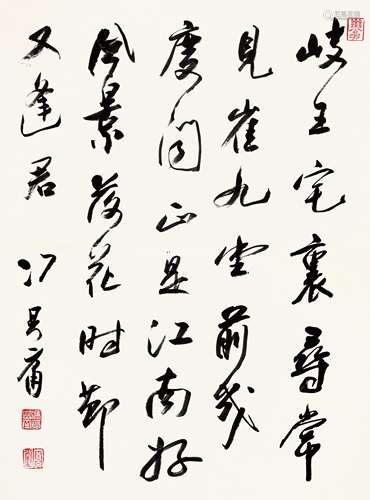 岐王宅裏尋常
見崔九堂前幾
度聞正是江南好
風景落花時節
又逢君 冯其庸